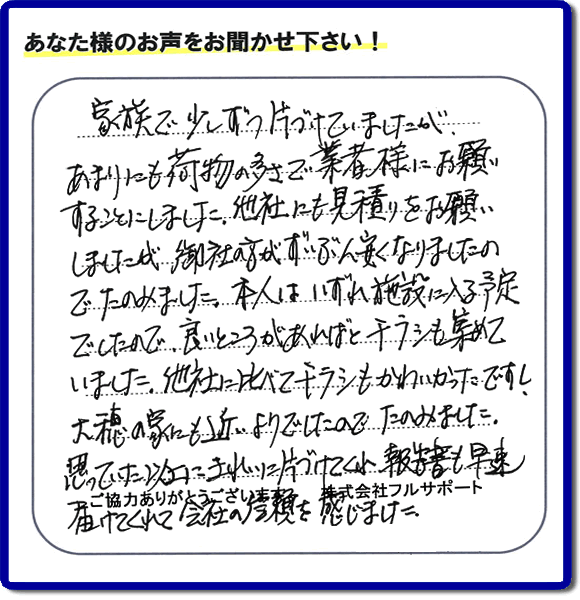 あなた様のお声をお聞かせ下さい！
家族で少しずつ片づけていましたが、
あまりにも荷物の多さで業者様にお願い
することにしました。他社にも見積りをお願い
しましたが御社の方がずいぶん安くなりましたの
でたのみました。本人はいずれ施設に入る予定
でしたので、良いところがあればとチラシも集めて
いました。他社に比べてチラシもかわいかったです!
大穂の家にも近いよりでしたのでたのみました。
思っていた以上にきれいに片づけてくれ、報告書も早速
届けてくれて会社の信頼を感じました。
ご協力ありがとうございます 株式会社フルサポート